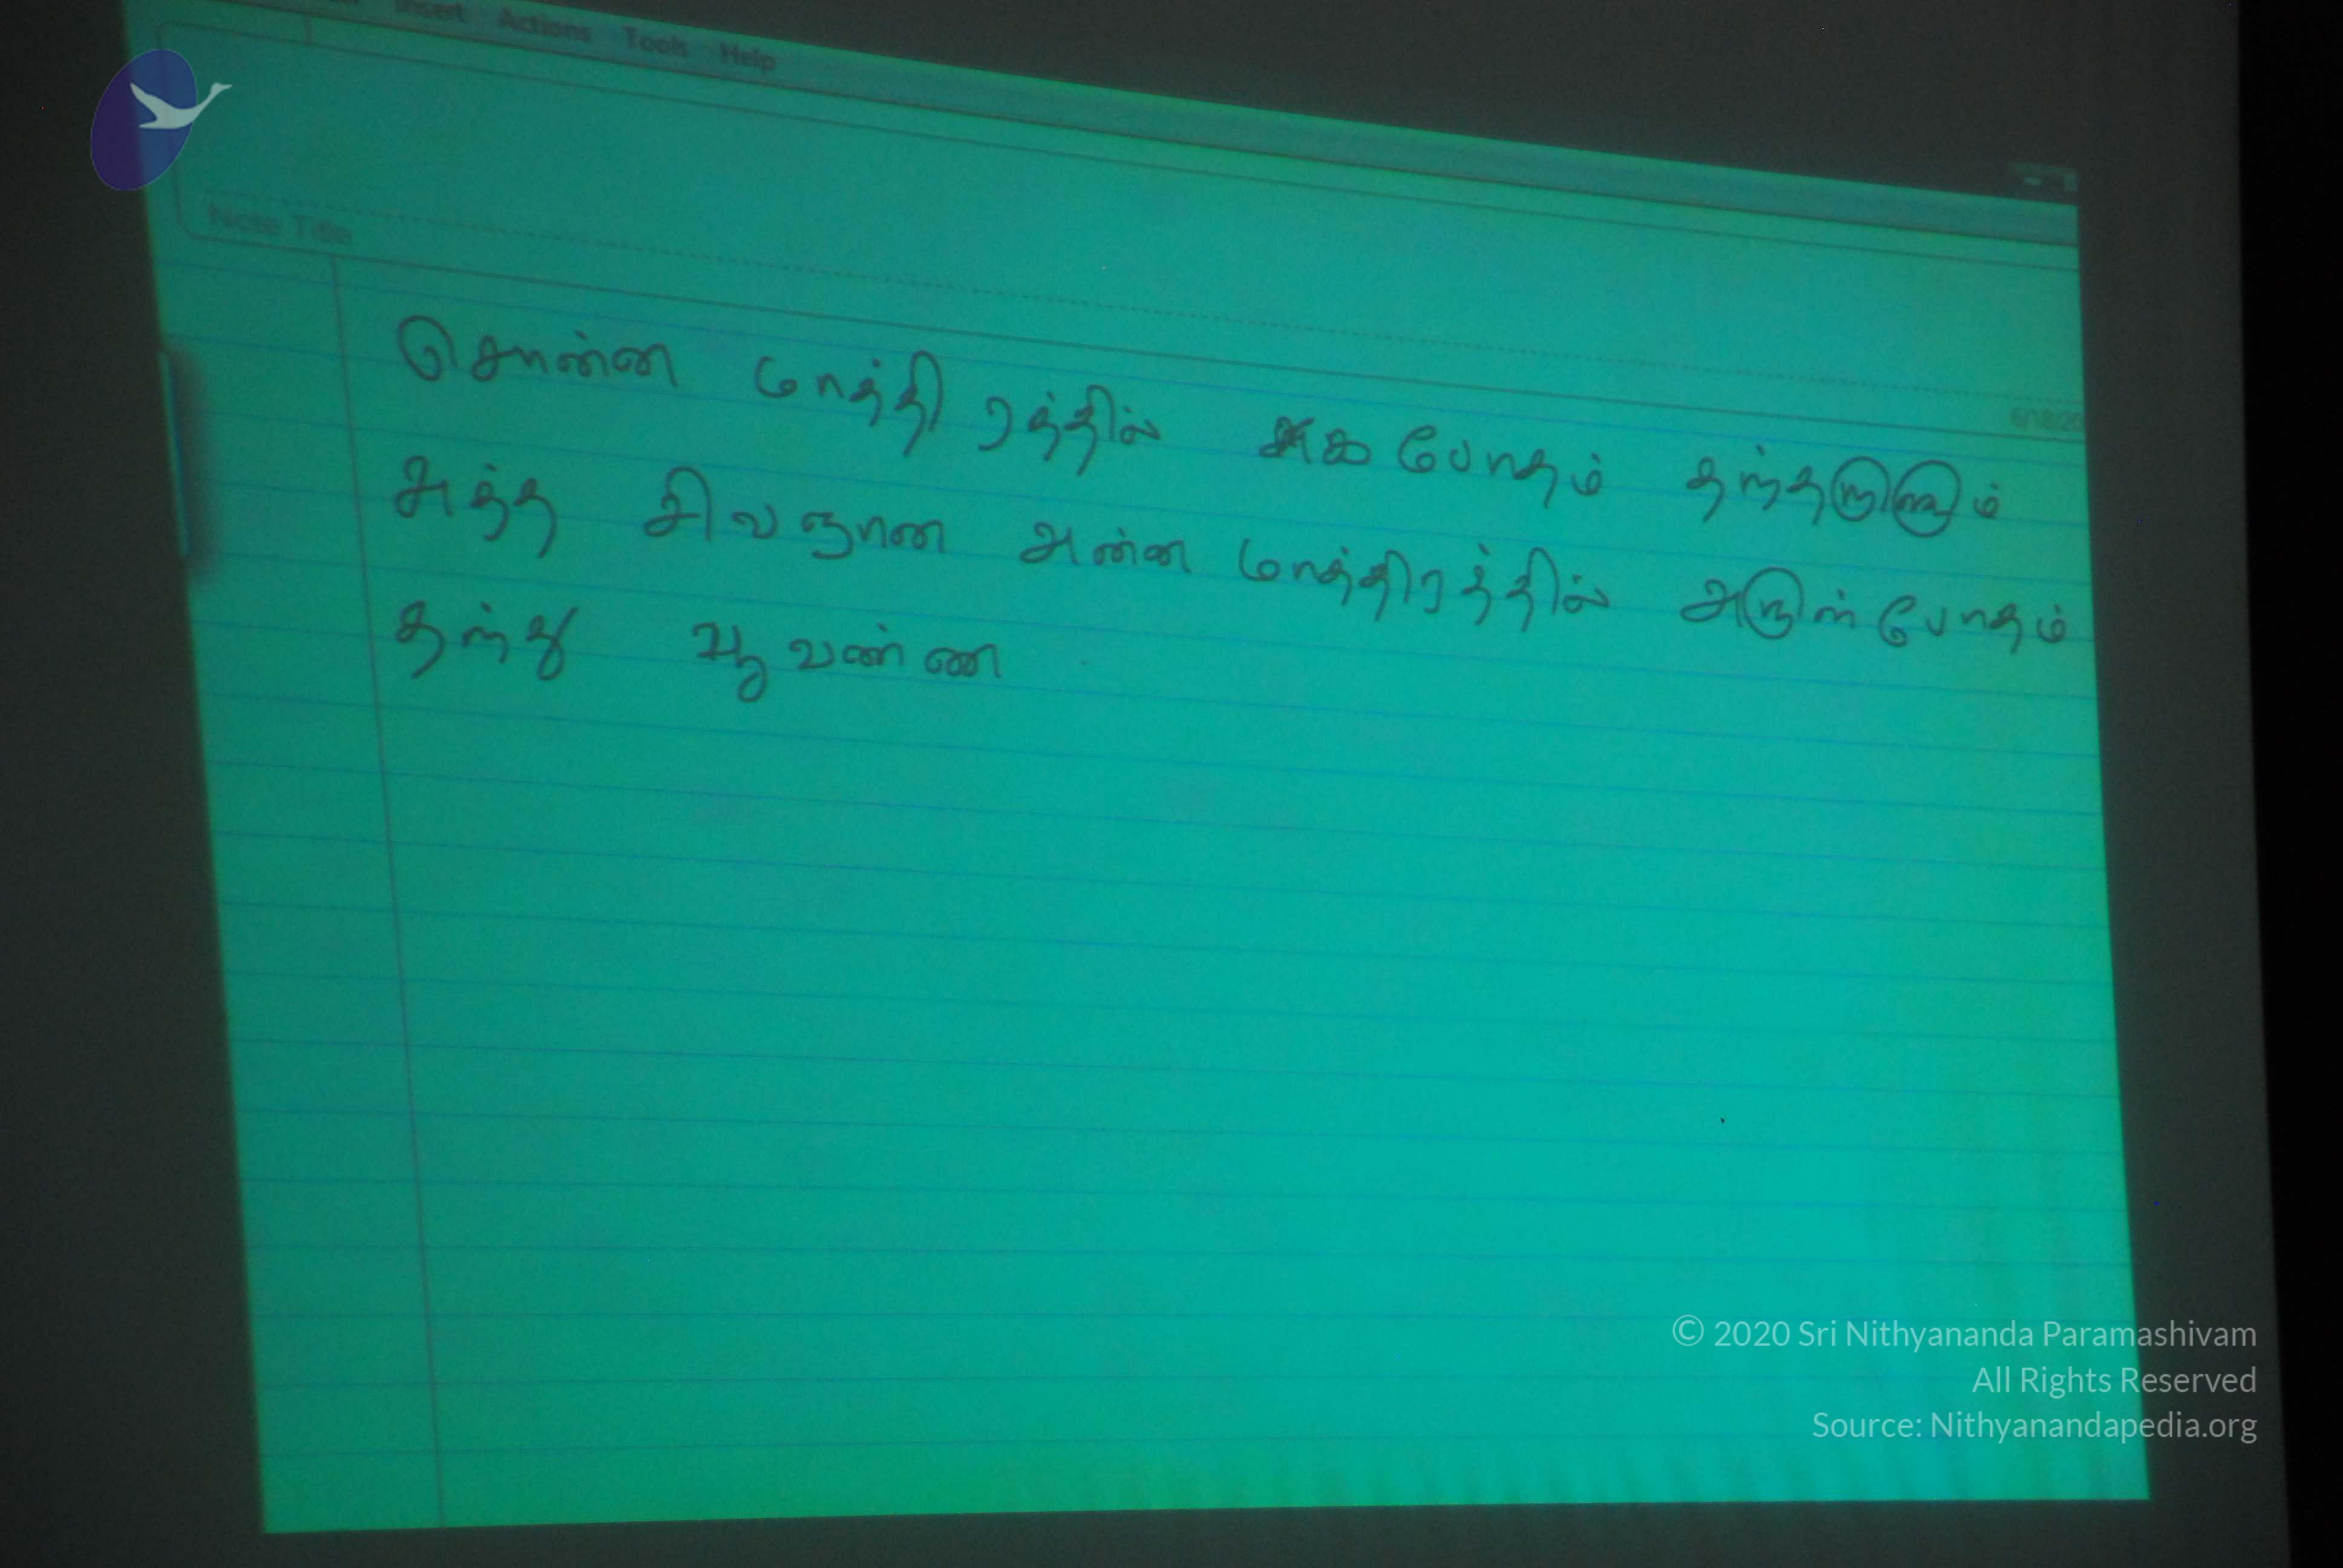 Insert Actions Tools Help
Note Title
6/18/20
சொன்ன மாத்திரத்தில் சுக போதம் தந்தருளும்
அத்த சிவஞான அன்ன மாத்திரத்தில் அருள் போதம்
தந்து பூவண்ண
© 2020 Sri Nithyananda Paramashivam
All Rights Reserved
Source: Nithyanandapedia.org